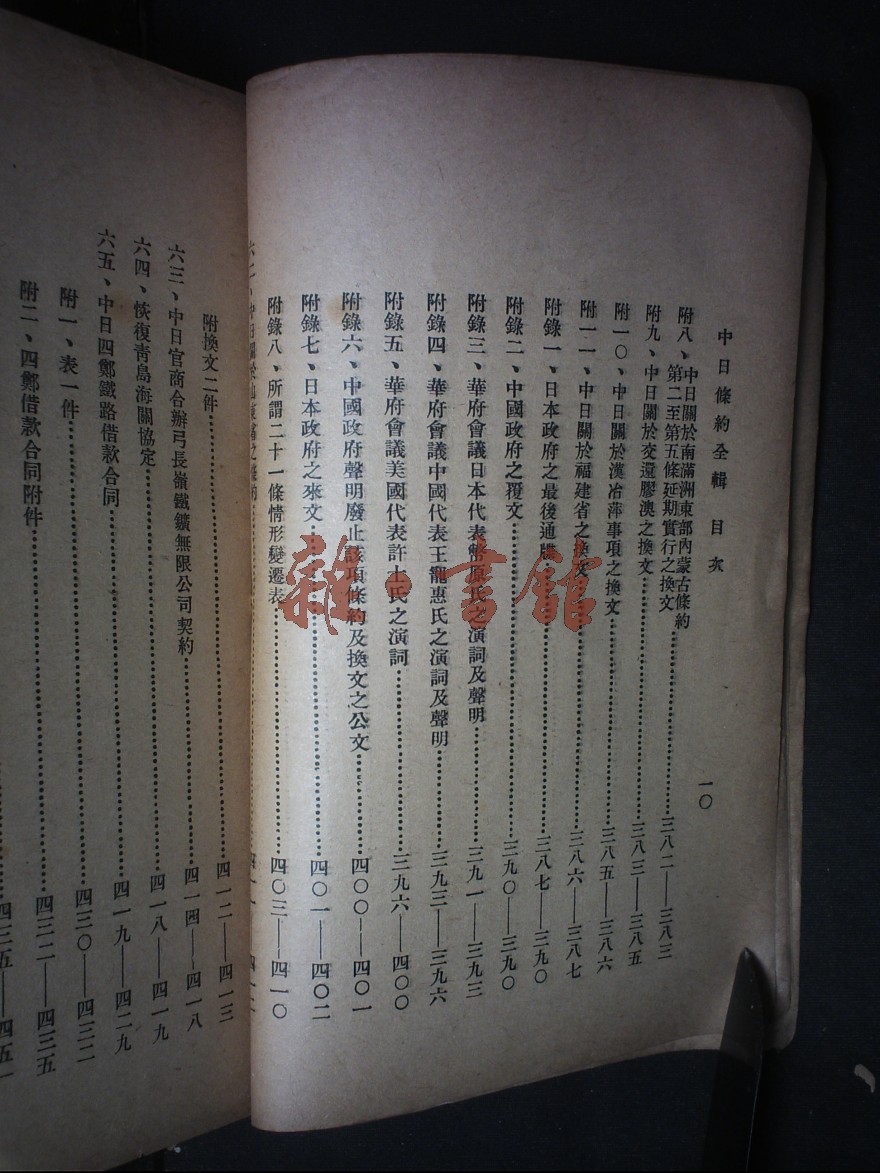 中日條約全輯 目次 一〇
附八、中日關於南滿洲東部內蒙古條約
第二至第五條延期實行之換文……三八二——三八三
附九、中日關於交還膠澳之換文……三八三——三八五
附一〇、中日關於漢冶萍事項之換文……三八五——三八六
附一一、中日關於福建省之換文……三八六——三八七
附錄一、日本政府之最後通牒……三八七——三九〇
附錄二、中國政府之覆文……三九〇——三九〇
附錄三、華府會議日本代表幣原氏之演詞及聲明……三九一——三九三
附錄四、華府會議中國代表王寵惠氏之演詞及聲明……三九三——三九六
附錄五、華府會議美國代表許士氏之演詞……三九六——四〇〇
附錄六、中國政府聲明廢止該項條約及換文之公文……四〇〇——四〇一
附錄七、日本政府之來文……四〇一——四〇二
附錄八、所謂二十一條情形變遷表……四〇三——四一〇
六二、中日關於山東省之條約……
附換文二件……四一二——四一三
六三、中日官商合辦弓長嶺鐵鑛無限公司契約……四一四——四一八
六四、恢復靑島海關協定……四一八——四一九
六五、中日四鄭鐵路借款合同……四一九——四二九
附一、表一件……四三〇——四三二
附二、四鄭借款合同附件……四三二——四三五
四三五——四五一
雜·書館